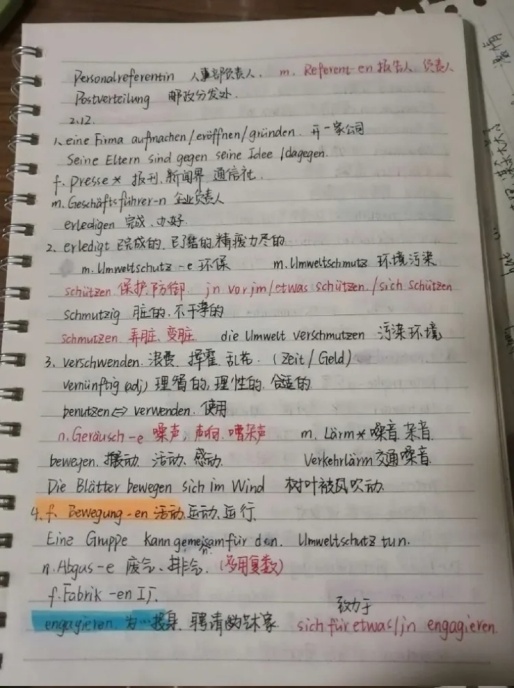 Personalreferentin 人事部负责人. m. Referent-en 报告人, 负责人
Postverteilung 邮政分发处.
2.12.
1. eine Firma aufmachen/eröffnen/gründen. 开一家公司
Seine Eltern sind gegen seine Idee /dagegen.
f. presse* 报刊, 新闻界 通信社.
m. Geschäftsführer-n 企业负责人
erledigen 完成, 办好
2. erledigt 完成的, 精疲力尽的
m. Umweltschutz -e 环保 m. Umweltschmutz 环境污染
schützen 保护, 防御 jn vor jm/etwas schützen./sich schützen
schmutzig 脏的, 不干净的
schmutzen 弄脏, 变脏 die Umwelt verschmutzen 污染环境
3. verschwenden. 浪费, 挥霍 乱花. (Zeit/Geld)
vernünftig (adj) 理智的, 理性的, 合适的
benutzen⇔verwenden. 使用
n. Geräusch-e 噪声, 声响, 嘈杂声 m. Lärm* 噪音 杂音.
bewegen. 搬动, 活动, 感动. Verkehrlärm 交通噪音
Die Blätter bewegen sich im Wind 树叶被风吹动.
4. f. Bewegung-en 活动, 运动, 运行.
Eine Gruppe kann gemeisam für den. Umweltschutz tun.
n
n. Abgus-e 废气, 排气. (多用复数)
f. Fabrik -en 工厂.
致力于
engagieren. 为…投身, 聘请 sich für etwas/jn engagieren.